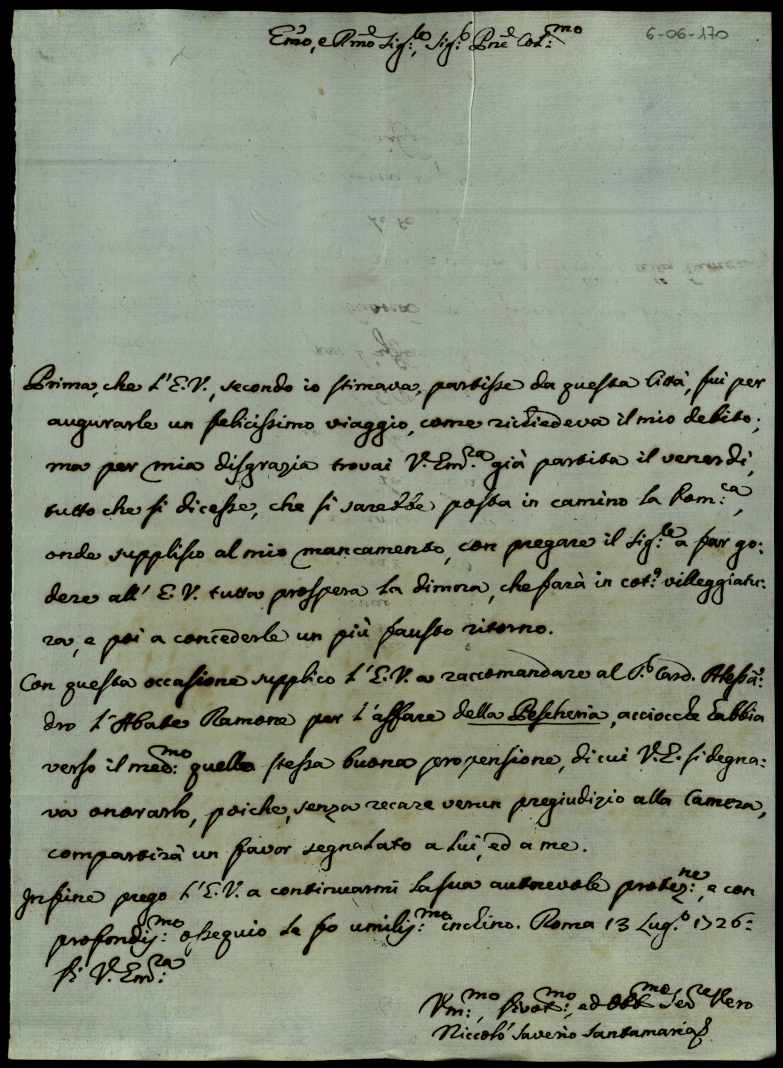 Emo, e Rmo Sig:re, Sig:r Pne Col:mo
6-06-170
Prima, che l'E.V., secondo io stimava, partisse da questa Città, fui per
augurarle un felicissimo viaggio, come richiedeva il mio debito;
ma per mia disgrazia trovai V. Em:za già partita il venerdì,
tutto che si dicesse, che si sarebbe posta in camino la Dom:ca,
onde supplisco al mio mancamento, con pregare il Sig:re a far go:
dere all' E.V. tutta prospera la dimora, che farà in cot:a villeggiatu:
ra, e poi a concederle un più fausto ritorno.
Con questa occasione supplico l'E.V. a raccomandare al S:r Card. Alessan:
dro l'Abate Ramone per l'affare della Pescheria, acciocche abbia
verso il med:mo quella stessa buona propensione, di cui V.E. si degna:
va onorarlo, poiche, senza recare verun pregiudizio alla Camera,
compartirà un favor segnalato a lui, ed a me.
Infine prego l'E.V. a continuarmi la sua autorevole protez:ne, e con
profondis:mo ossequio le fo umilis:mo inchino. Roma 13 Lug:o 1726:
Di V. Em:za
Um:mo, Divot:mo, ed Obb:mo Ser:re Vero
Niccolò Saverio Santamaria